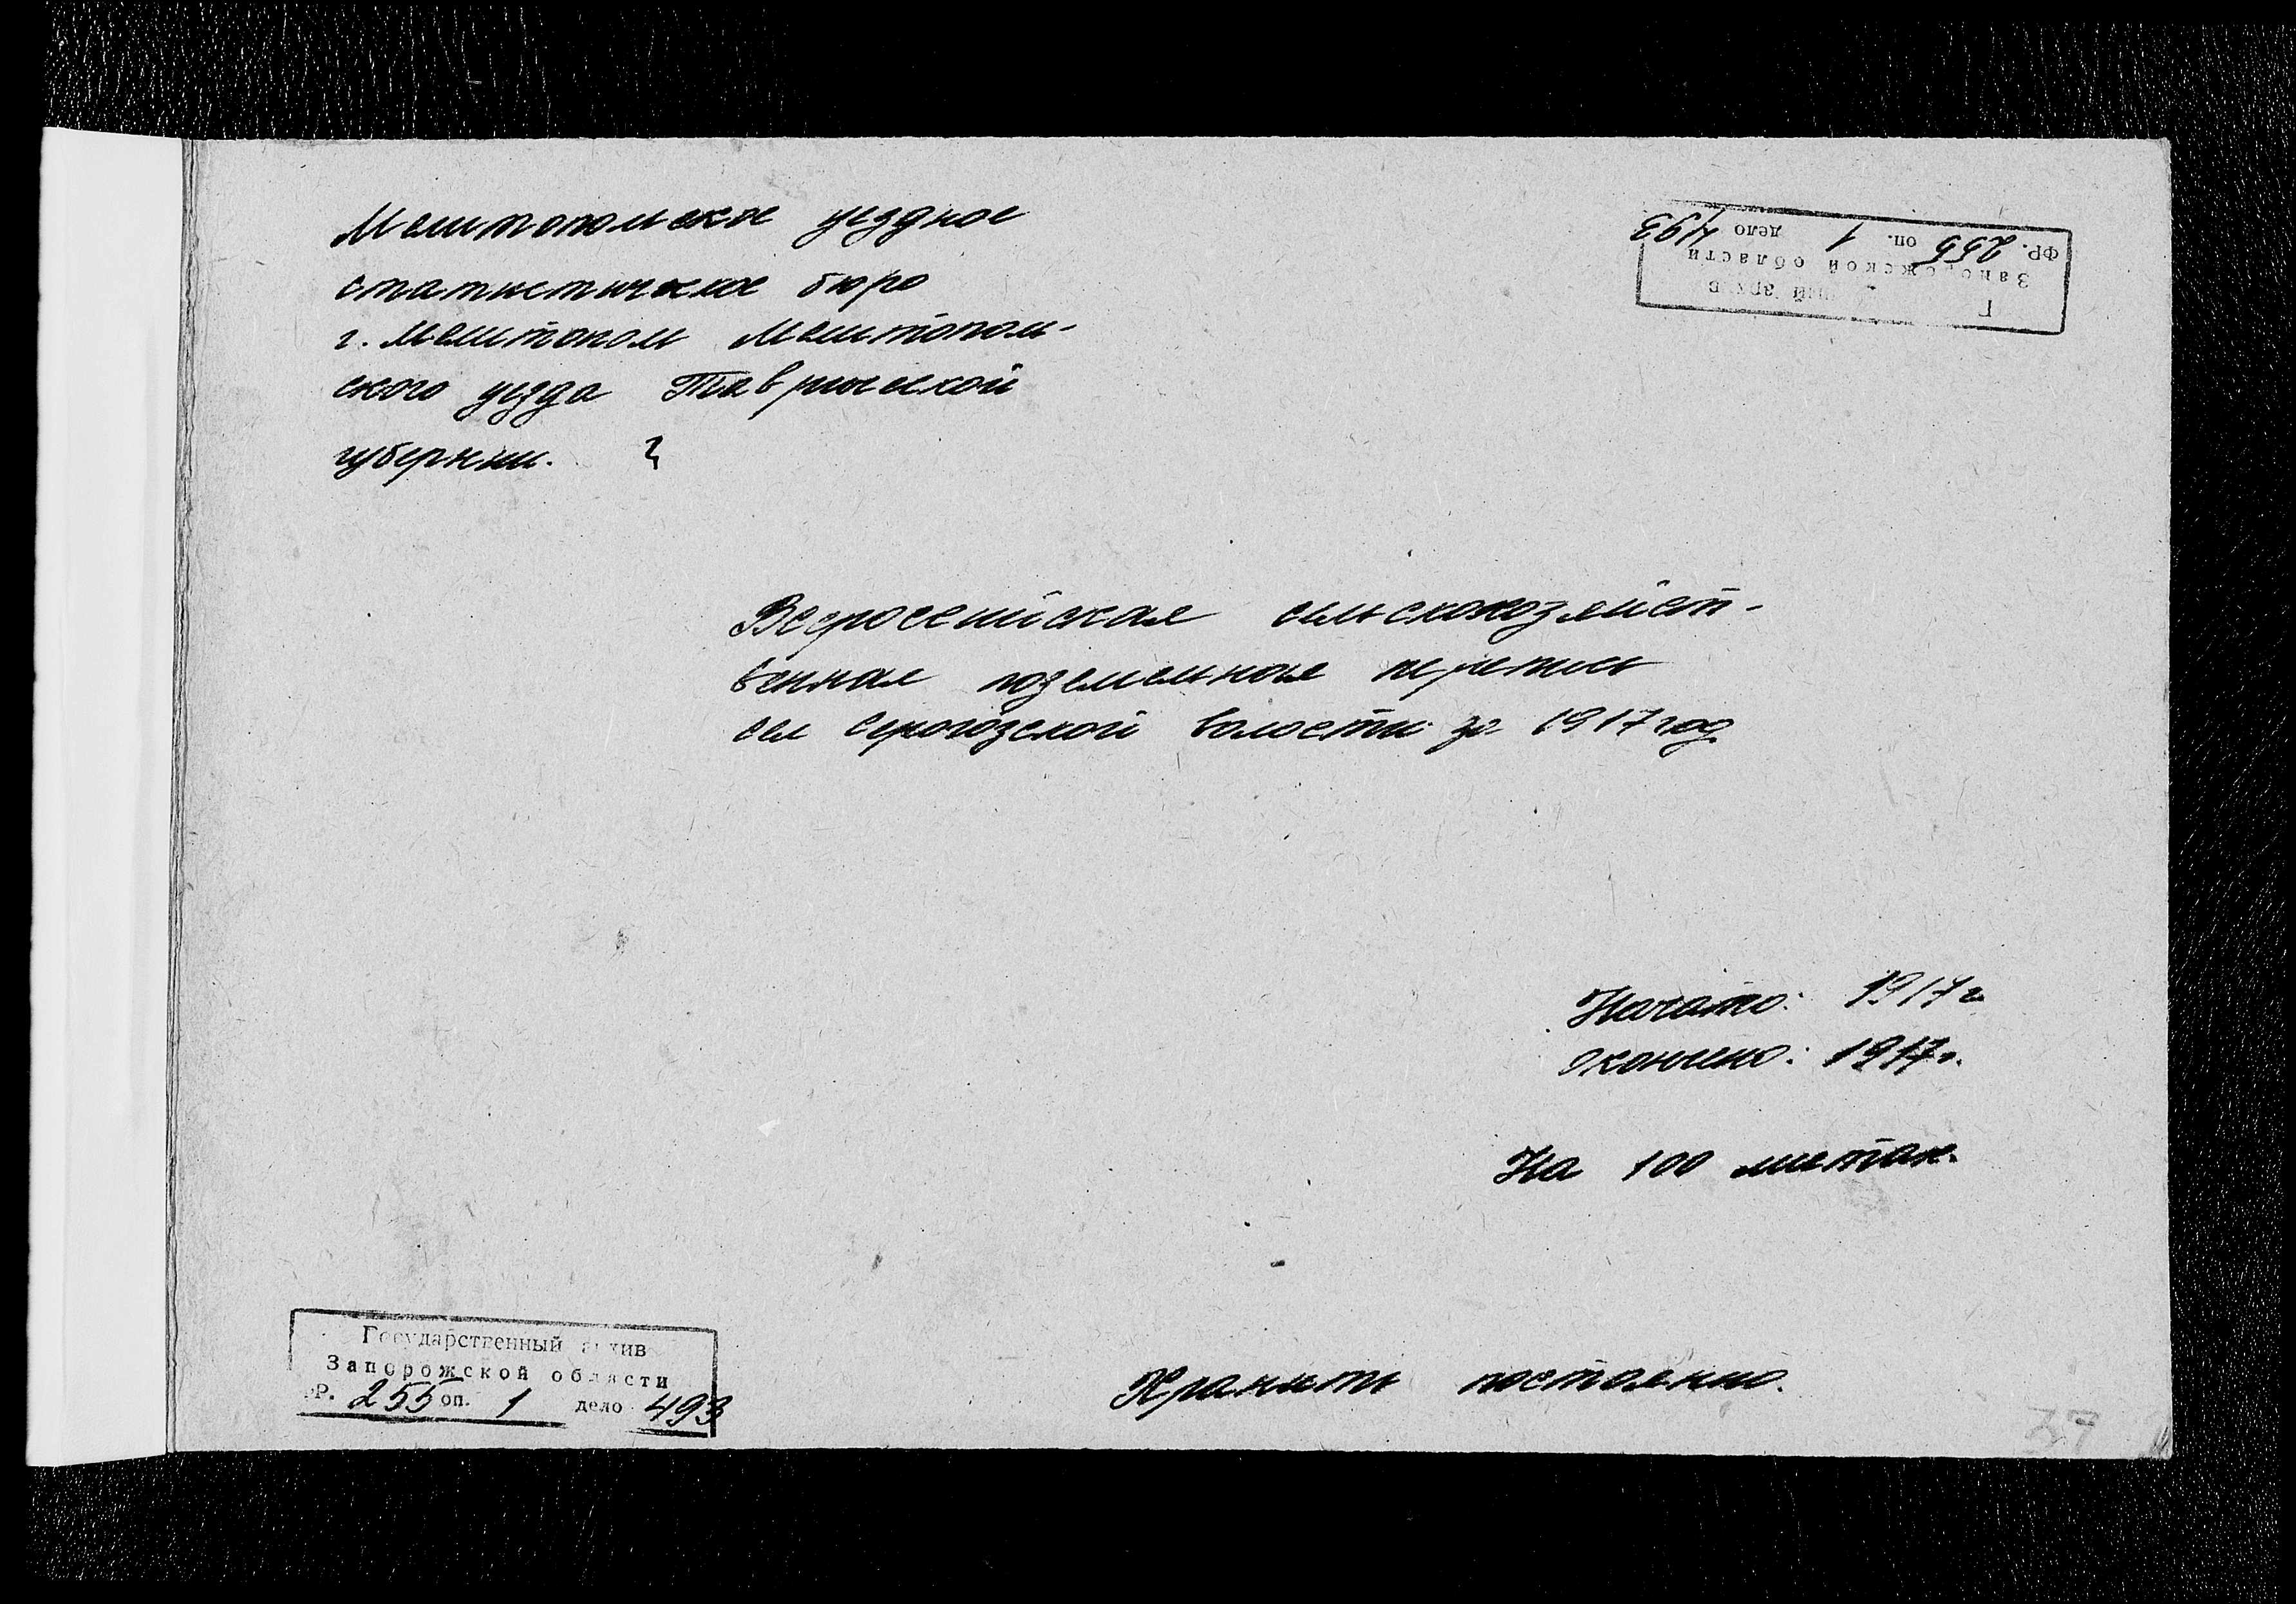 Мелитопольское уездное
статистическое бюро
г. Мелитополь Мелитополь-
ского уезда Таврической
губернии.
ФР. 255 оп. 1 дело 493
Запорожской области
Всероссийская сельскохозяйст-
венная поземельная перепись
сел Серогозской волости за 1917 год
Начато: 1917 г.
Окончено: 1917 г.
На 100 листах.
Государственный архив
Запорожской области
ФР. 255 оп. 1 дело 493
Хранить постоянно.
37